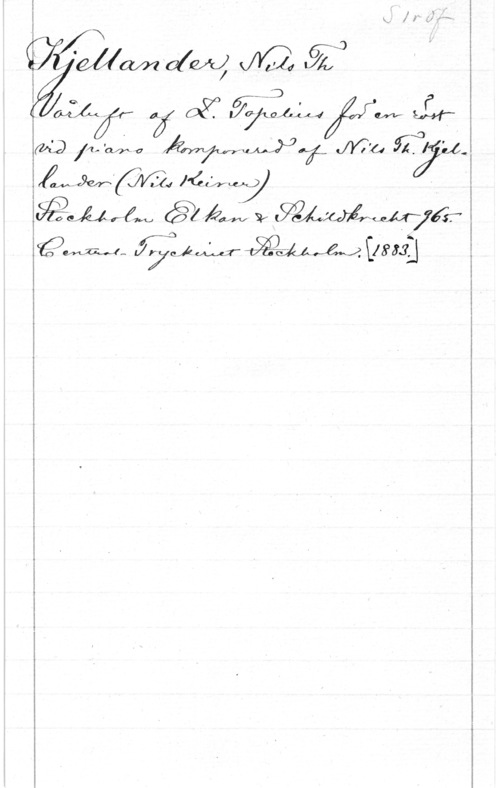 S1röf
Kjellander, Nils Th
Vårluft af Z. Topelius för en röst
vid piano komponerad af Nils Th. Kjel-
lander (Nils Keiner)
Stockholm Elkan & Schildknecht 965.
Central-Tryckeriet Stockholm. [1883.]